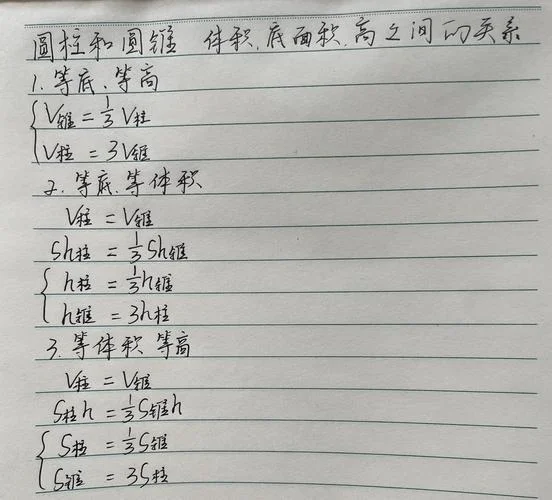 圆柱和圆锥 体积、底面积、高之间的关系
1. 等底、等高
V锥 = 1/3 V柱
V柱 = 3V锥
2. 等底、等体积
V柱 = V锥
Sh柱 = 1/3 Sh锥
h柱 = 1/3 h锥
h锥 = 3h柱
3. 等体积 等高
V柱 = V锥
S柱h = 1/3 S锥h
S柱 = 1/3 S锥
S锥 = 3S柱